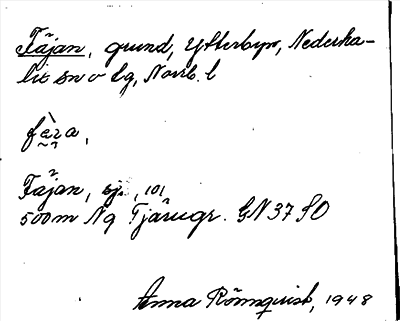 Täjan, grund, Ytterbyn, Nederka-
lix sn o lg, Norrb. l
Täjan, sj. , 101
500m NQ Tjärugr. GN 37 SO
Anna Rönnquist, 1948